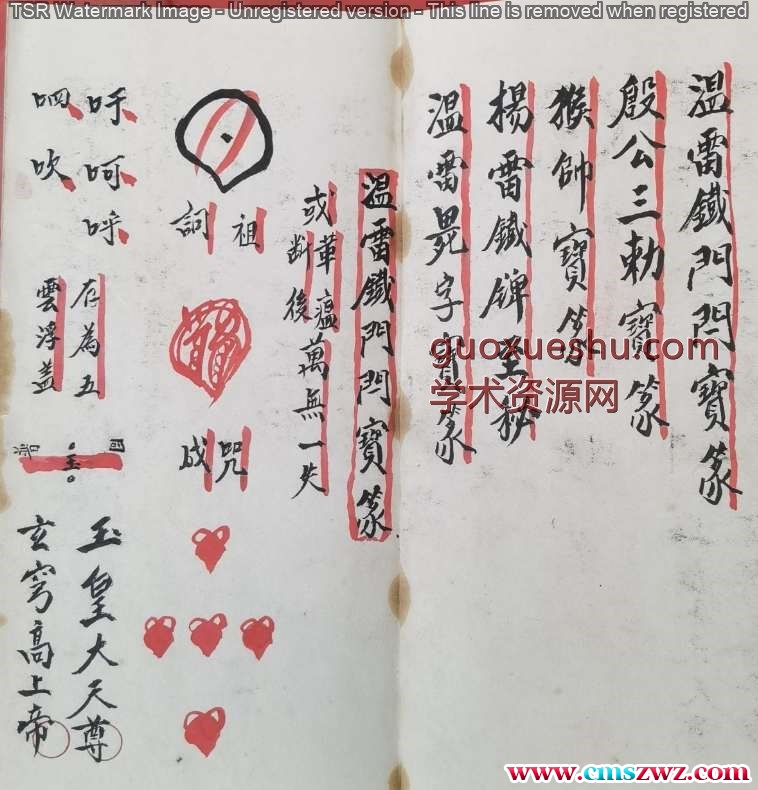 TSR Watermark Image - Unregistered version - This line is removed when registered
溫雷鐵門閂寶篆
殷公三勅寶篆
猴帥寶篆
楊雷鐵牌至秘
溫雷 字 篆
guoxueshu.com
学术资源网
溫雷鐵門閂寶篆
或華瘟萬無一失
断後
祖
詞
咒
成
吁呵呼
呬吹
存為五
雲浮蓋
玉皇大天尊
玄穹高上帝
www.cmszwz.com